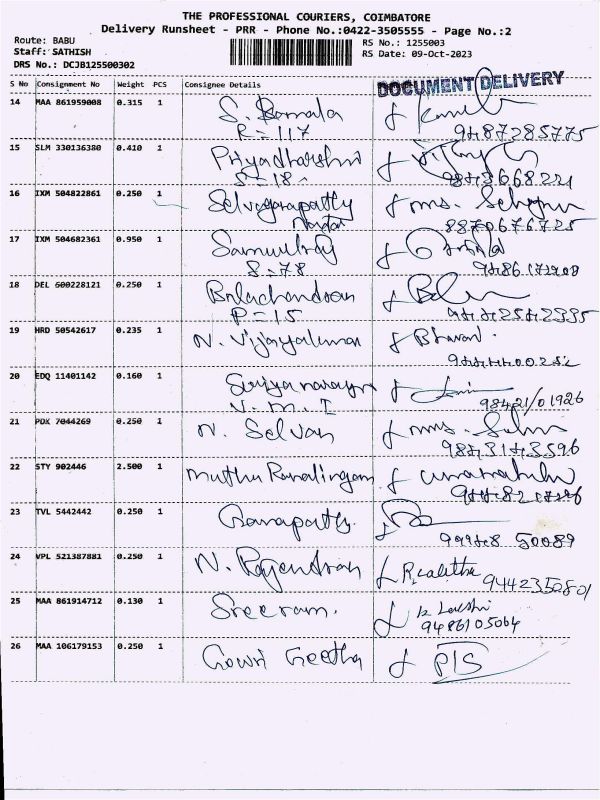 THE PROFESSIONAL COURIERS, COIMBATORE
Delivery Runsheet - PRR - Phone No.:0422-3505555 - Page No.:2
Route: BABU
Staff: SATHISH
DRS No.: DCJB125500302
RS No.: 1255003
RS Date: 09-Oct-2023
S No Consignment No Weight PCS Consignee Details
DOCUMENT DELIVERY
14 MAA 861959008 0.315 1 S. Kamala
R=117
9487285775
15 SLM 330136380 0.410 1 Priyadharshni
S=18
16 IXM 504822861 0.250 1 mrs.
8870676725
17 IXM 504682361 0.950 1 Samuelraj
S=78
18 DEL 600228121 0.250 1 Balachandran
P=15
19 HRD 50542617 0.235 1 N. Vijayakumar
20 EDQ 11401142 0.160 1 Suriyanarayan
98421/01926
21 PDX 7044269 0.250 1 N. Selvan mrs.
9843143596
22 STY 902446 2.500 1 Muthu Ramalingam
23 TVL 5442442 0.250 1 Ganapathy
50089
24 VPL 521387881 0.250 1 N. Rajendran R. Lalitha
9442350801
25 MAA 861914712 0.130 1 Sreeram.
9486105064
26 MAA 106179153 0.250 1 Gowri Geetha